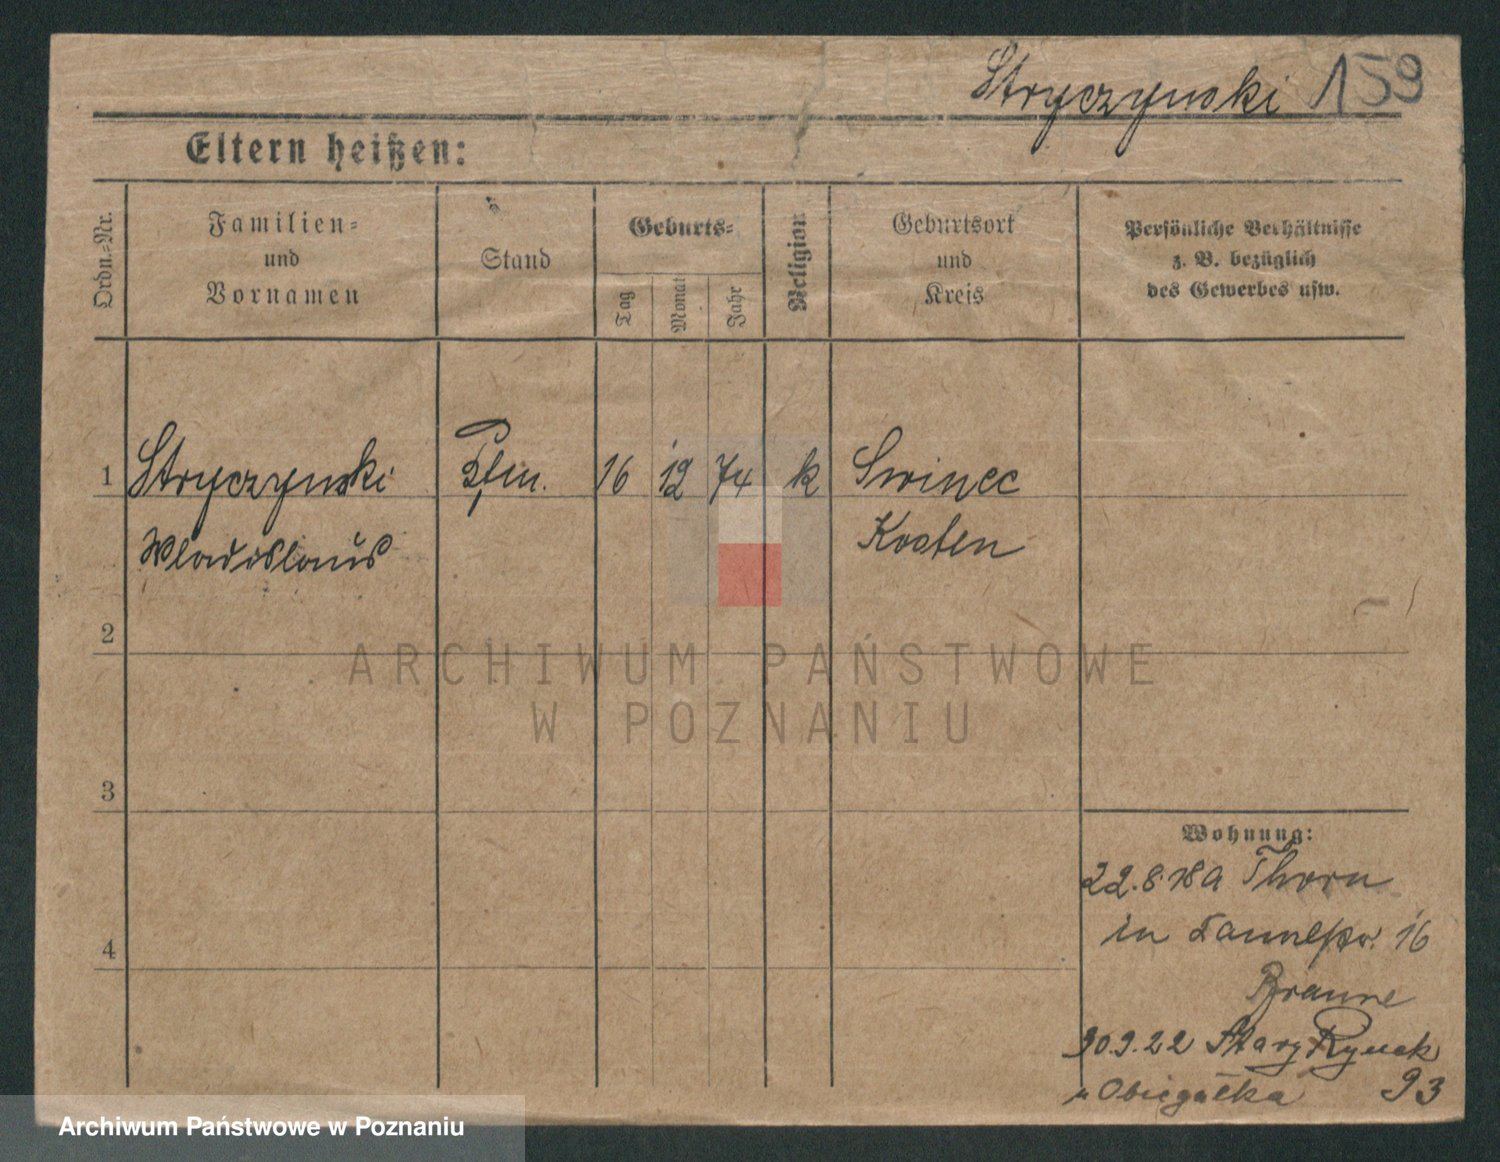 Stryczynski 159
Eltern heißen:
Ordn.-Nr.
Familien-
und
Vornamen
Stand
Geburts-
Tag
Monat
Jahr
Religion
Geburtsort
und
Kreis
Persönliche Verhältnisse
z. B. bezüglich
des Gewerbes usw.
1 Stryczynski 16 12 74 k Swinec
Wladislaus Kosten
2
ARCHIWUM PAŃSTWOWE
W POZNANIU
3
Wohnung:
22.8. Thorn
in 16
4
30.9.22 Stary Rynek
93
Archiwum Państwowe w Poznaniu